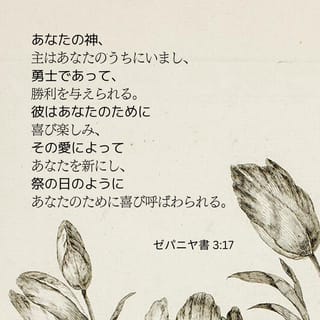 あなたの神、
主はあなたのうちにいまし、
勇士であって、
勝利を与えられる。
彼はあなたのために
喜び楽しみ、
その愛によって
あなたを新にし、
祭の日のように
あなたのために喜び呼ばわられる。
ゼパニヤ書 3:17